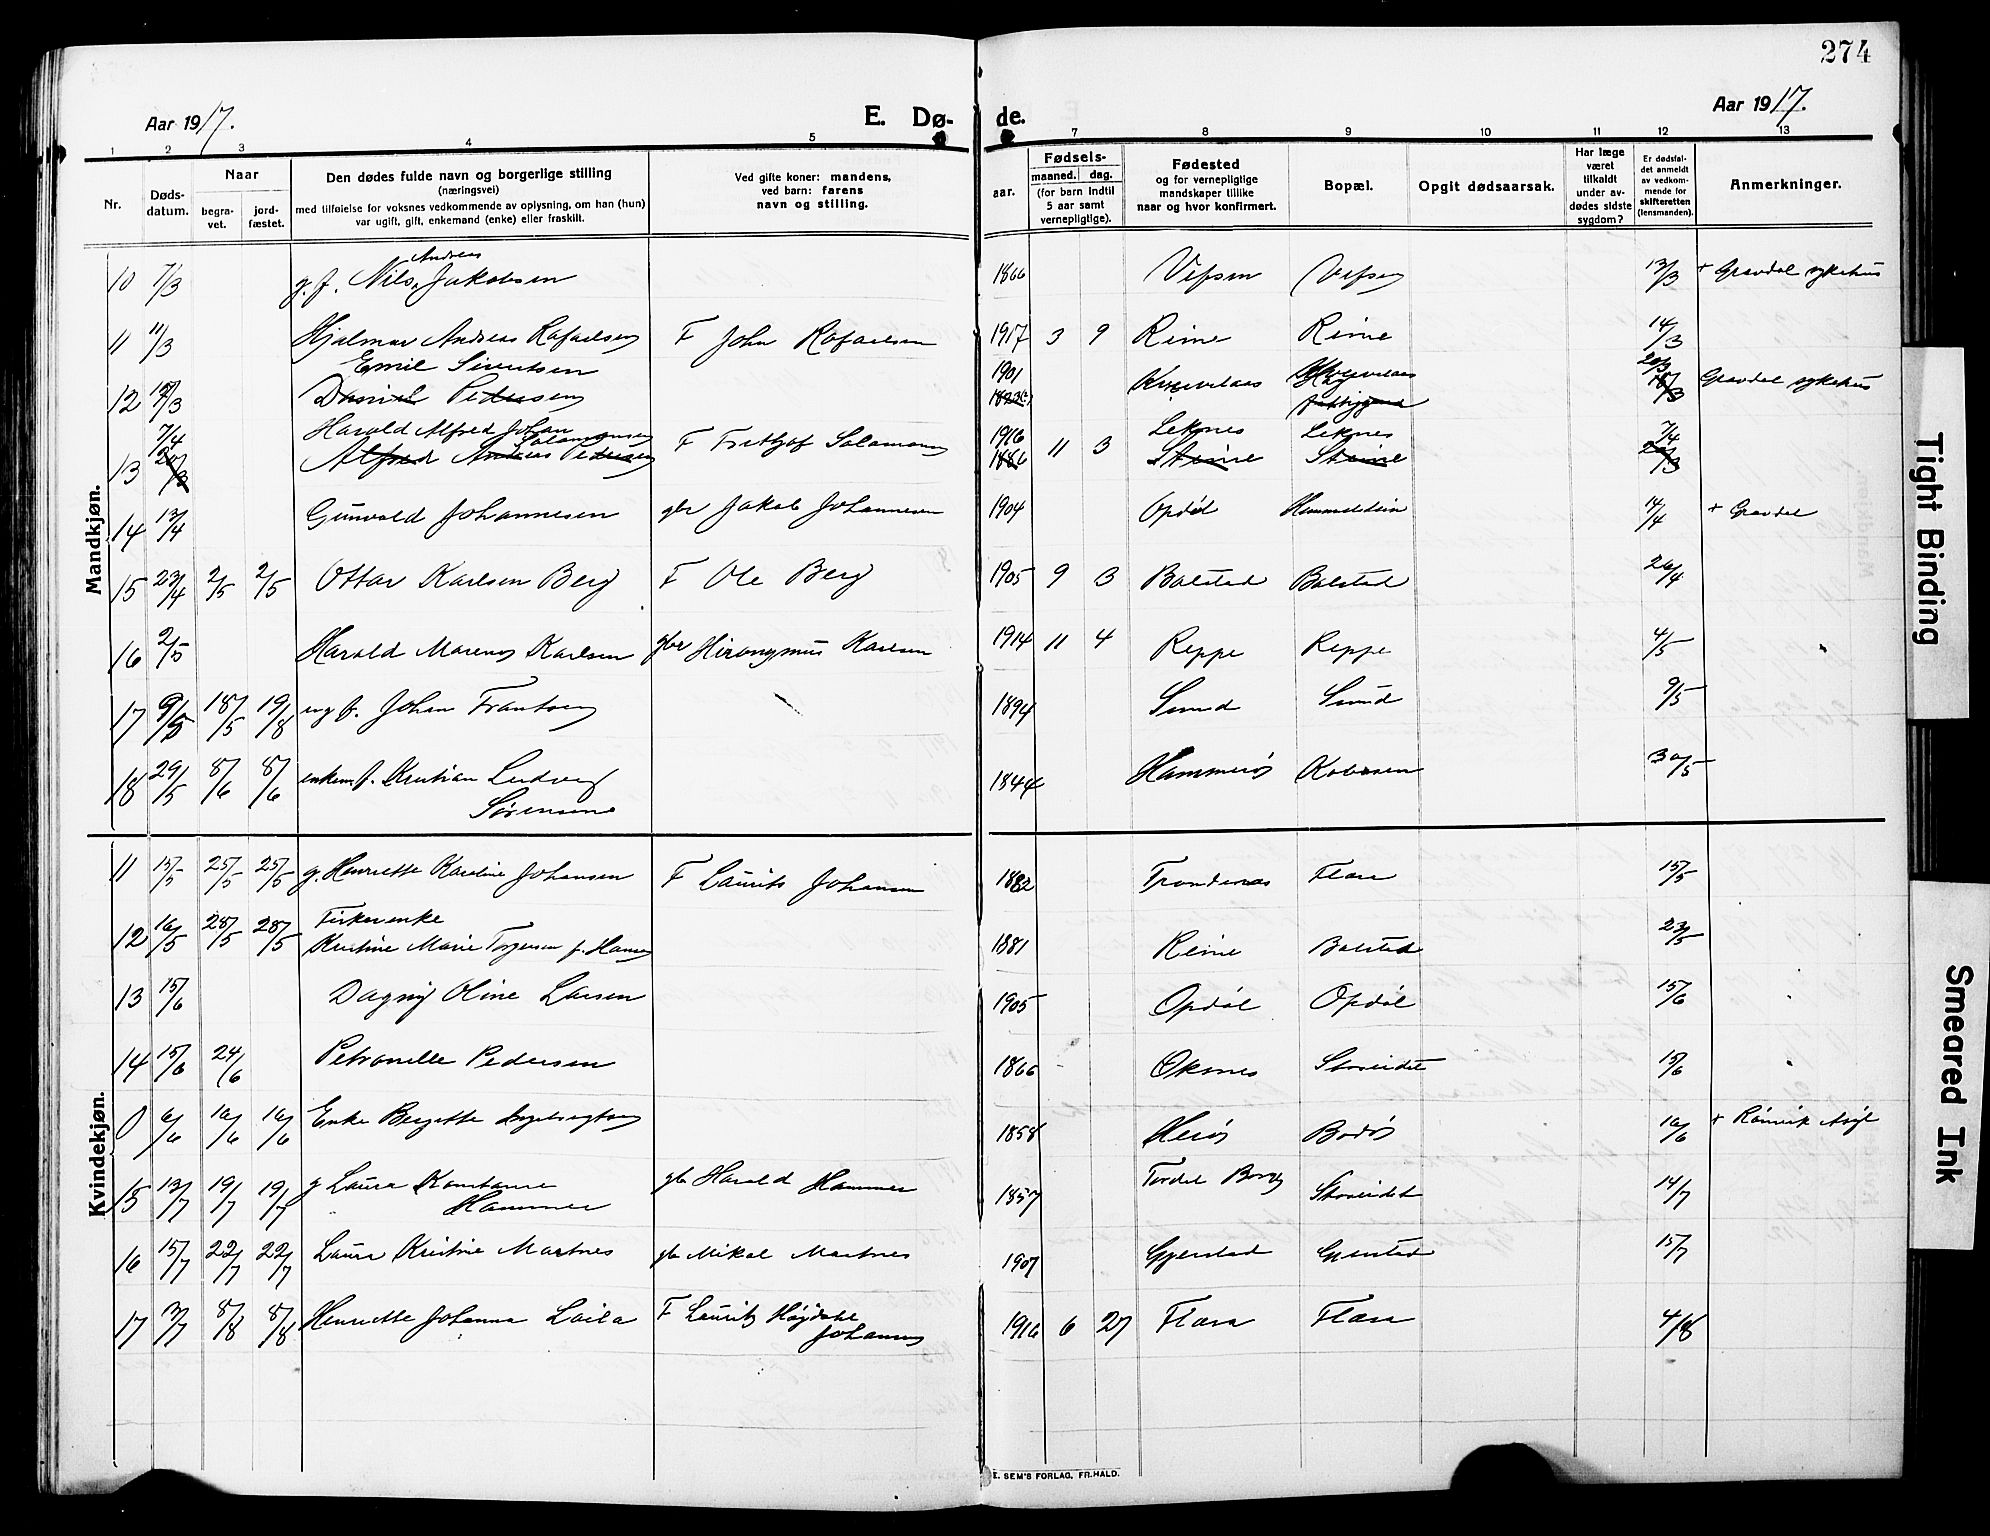 274
Aar 1917.
E. Dø-
de.
Aar 1917.
1 2 3 4 5 7 8 9 10 11 12 13
Nr.
Døds-
datum.
Naar
begra-
vet.
jord-
fæstet.
Den dødes fulde navn og borgerlige stilling
(næringsvei)
med tilføielse for voksnes vedkommende av oplysning, om han (hun)
var ugift, gift, enkemand (enke) eller fraskilt.
Ved gifte koner: mandens,
ved barn: farens
navn og stilling.
aar.
Fødsels-
maaned. dag.
(for barn indtil
5 aar samt
vernepligtige).
Fødested
og for vernepligtige
mandskaper tillike
naar og hvor konfirmert.
Bopæl.
Opgit dødsaarsak.
Har læge
været
tilkaldt
under av-
dødes sidste
sygdom?
Er dødsfal-
det anmeldt
av vedkom-
mende for
skifteretten
(lensmanden).
Anmerkninger.
Mandkjøn.
Andreas
10 7/3 g. f. Nils Jakobsen 1866 Vefsen Vefsen 13/3 + Gravdal sykehus
11 11/3 Hjalmar Andreas Rafaelsen F John Rafaelsen 1917 3 9 Reine Reine 14/3
Emil Sivertsen 1901 20/3
12 Daniel Pedersen Gravdal sykehus
7/4 Harald Alfred Johan Salamonsen F Fritjof Salamonsen 1916 11 3 Leknes Leknes 7/4
13 20/3 Alfred Andreas Pedersen 1886 Steine Steine 20/3
14 13/4 Gunvald Johannesen gbr Jakob Johannesen 1904 Opdøl 14/4 + Gravdal
15 23/4 2/5 2/5 Ottar Karlsen Berg F Ole Berg 1905 9 3 Balstad Balstad 26/4
16 2/5 Harald Marenus Karlsen gbr Hironymus Karlsen 1914 11 4 Reppe Reppe 4/5
17 9/5 18/5 19/8 ug f. Johan Frantsen 1894 Sund Sund 9/5
18 29/5 8/6 8/6 enkem. f. Kristian Ludvig 1844 Hammerøy 30/5
Sørensen
Kvindekjøn.
11 15/5 25/5 25/5 g. Henriette Karoline Johansen F Laurits Johansen 1882 Trondenæs Flæsa 15/5
Fiskerenke
12 16/5 28/5 28/5 Kristine Marie Torgersen f. Hansen 1881 Reine Balstad 23/5
13 15/6 Dagny Oline Larsen 1905 Opdøl Opdøl 15/6
14 15/6 24/6 Petronelle Pedersen 1866 Øksnes Storeidet 15/6
0 6/6 16/6 16/6 Enke Bergitte 1858 Herøy Bodø 16/6 + Rønvik Asyl
15 13/7 19/7 19/7 g Laura Konstanse gbr Harald Hammer 1857 Storeidet 14/7
Hammer
16 15/7 22/7 22/7 Laura Kristine Martnes gbr Mikal Martnes 1907 Gjerstad Gjerstad 15/7
17 3/7 8/8 8/8 Henriette Johanna Laila F Laurits 1916 6 27 Flæsa Flæsa 4/8
Johansen
E. SEM'S FORLAG, FR.HALD.
Tight Binding
Smeared Ink